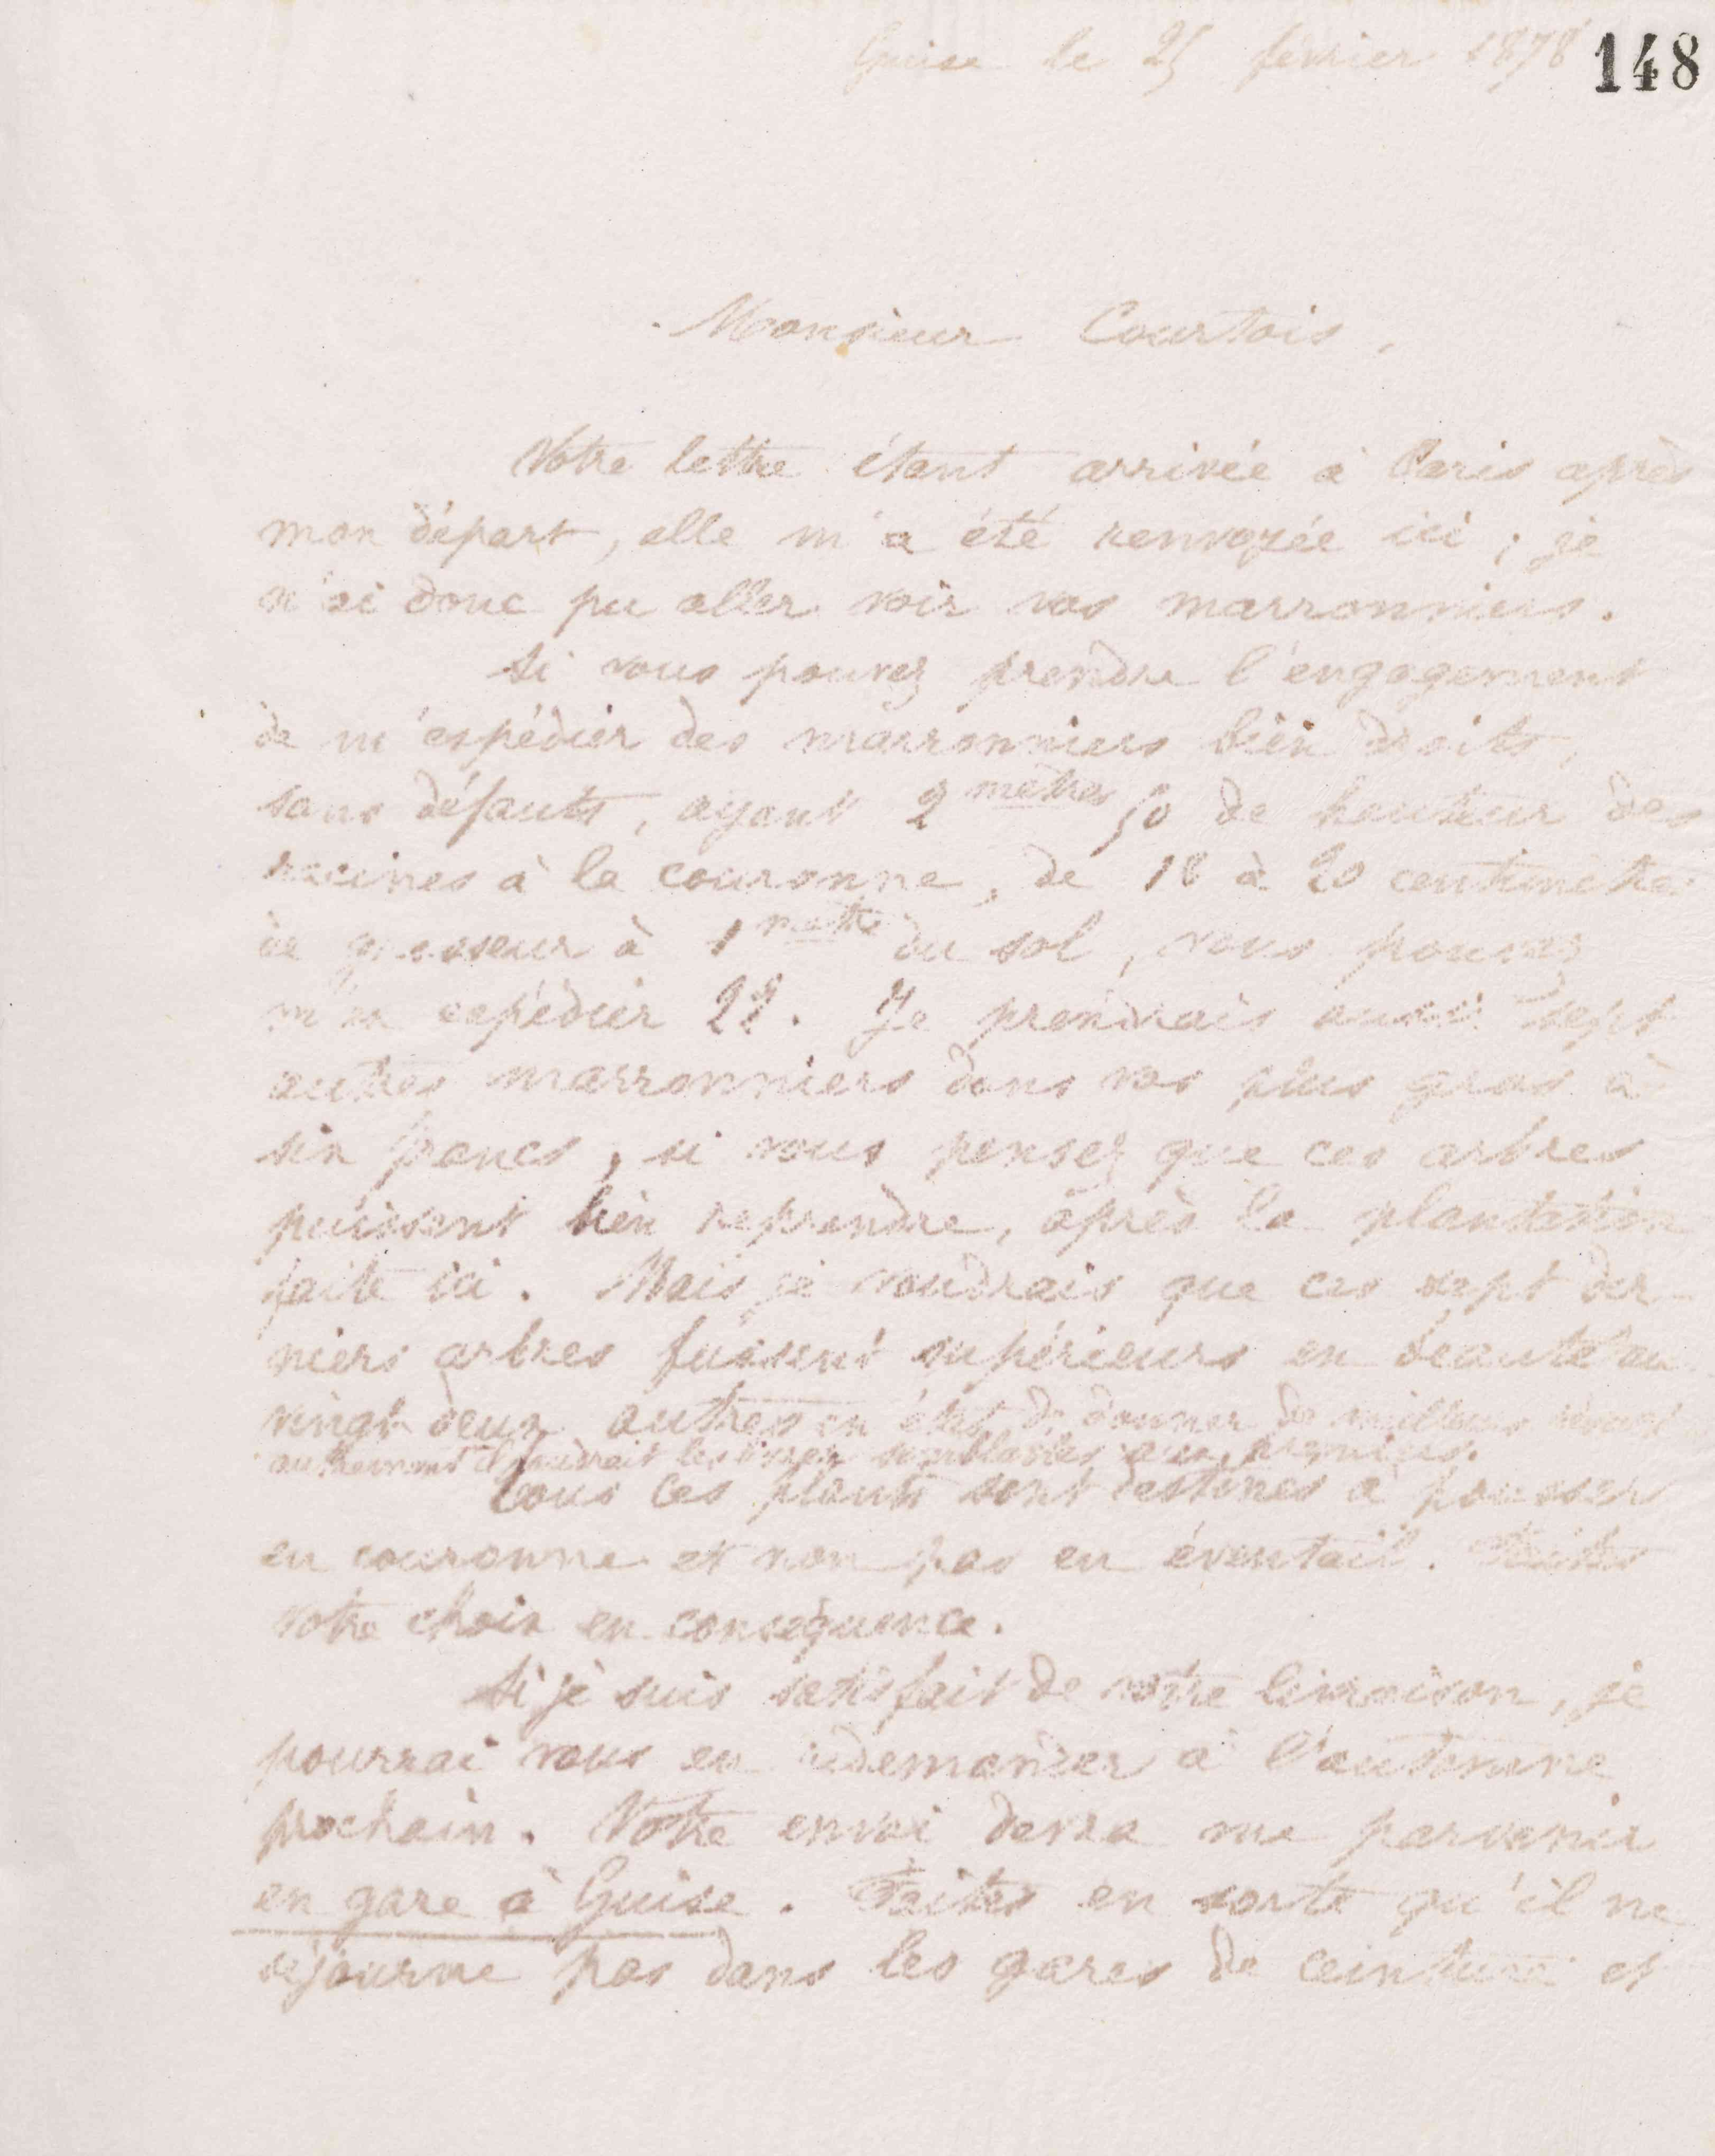 Guise le 25 février 1878 148
Monsieur Courtois,
Votre lettre étant arrivée à Paris après
mon départ, elle m'a été renvoyée ici ; je
n'ai donc pu aller voir vos marronniers.
Si vous pouvez prendre l'engagement
de m'expédier des marronniers bien droits,
sans défauts, ayant 2 mètres 50 de hauteur des
racines à la couronne, de 18 à 20 centimètres
de grosseur à 1 mètre du sol, vous pouvez
m'en expédier 22. Je prendrais aussi sept
autres marronniers dans vos plus gros à
six francs, si vous pensez que ces arbres
puissent bien reprendre, après la plantation
faite ici. Mais je voudrais que ces sept der-
niers arbres fussent supérieurs en beauté au
vingt deux autres en état de donner de meilleurs
autrement il faudrait les semblables aux premiers.
Tous ces plants sont destinés à pousser
en couronne et non pas en éventail. Faites
votre choix en conséquence.
Si je suis satisfait de votre livraison, je
pourrai vous en redemander à l'automne
prochain. Votre envoi devra me parvenir
en gare à Guise. Faites en sorte qu'il ne
séjourne pas dans les gares de ceinture et